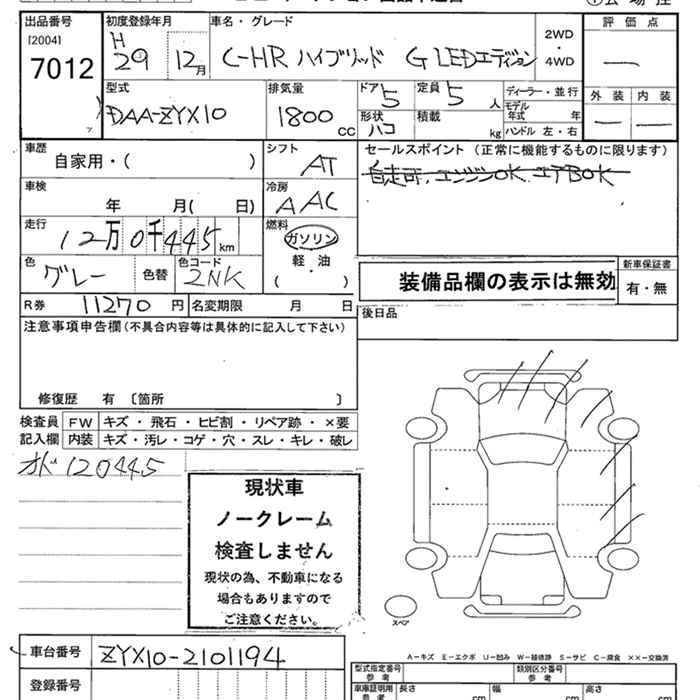 出品番号 初度登録年月 車名・グレード 評価点
[2004] H
7012 29年 12月 C-HR ハイブリッド G LEDエディション 2WD・4WD —
型式 排気量 ドア 定員 ディーラー・並行 外装 内装
DAA-ZYX10 1800cc 5 5人 モデル年式 年 — —
形状 積載 ハンドル 左・右
ハコ kg
車歴 シフト セールスポイント(正常に機能するものに限ります)
自家用・( ) AT 自走可，エンジンOK．エアBOK
車検 冷房
年 月( 日) AAC
走行 燃料
12万0千445km ガソリン
色 色替 色コード 軽・油 新車保証書
グレー 2NK ( ) 装備品欄の表示は無効 有・無
R券 11270円 名変期限 月 日 後日品
注意事項申告欄(不具合内容等は具体的に記入して下さい)
修復歴 有 〔箇所 〕
検査員 FW キズ・飛石・ヒビ割・リペア跡・×要
記入欄 内装 キズ・汚レ・コゲ・穴・スレ・キレ・破レ
オド120445
現状車
ノークレーム
検査しません
現状の為、不動車になる
場合もありますので
ご注意ください。
スペア
車台番号 ZYX10-2101194
登録番号
A－キズ E－エクボ U－凹み W－補修跡 S－サビ C－腐食 ××－交換済
型式指定番号 参考 類別区分番号 参考
車庫証明用 参考 長さ cm 幅 cm 高さ cm